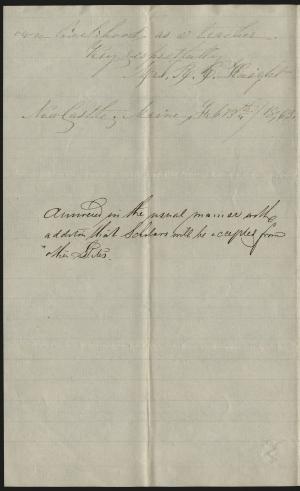 own livelihood as a teacher.
Very respectfully
Mrs. R. C. Knight
New Castle, Maine, Feb 13th / 1863.
Answered in the usual manner with
addition that Scholars will be accepted from
other States.